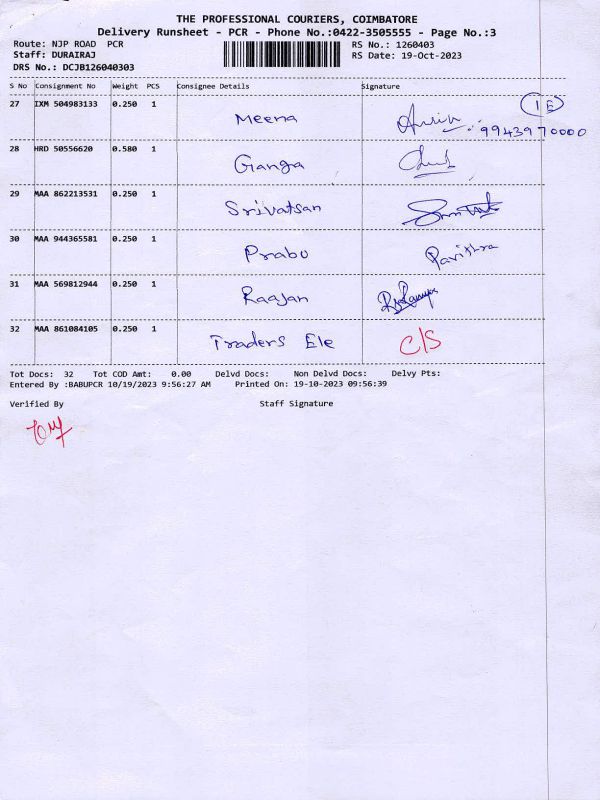 THE PROFESSIONAL COURIERS, COIMBATORE
Delivery Runsheet - PCR - Phone No.:0422-3505555 - Page No.:3
Route: NJP ROAD PCR RS No.: 1260403
Staff: DURAIRAJ RS Date: 19-Oct-2023
DRS No.: DCJB126040303
S No Consignment No Weight PCS Consignee Details Signature
27 IXM 504983133 0.250 1 Meena 9943970000
28 HRD 50556620 0.580 1 Ganga
29 MAA 862213531 0.250 1 Srivatsan
30 MAA 944365581 0.250 1 Prabu Pavithra
31 MAA 569812944 0.250 1 Raajan
32 MAA 861084105 0.250 1 Traders Ele C/S
Tot Docs: 32 Tot COD Amt: 0.00 Delvd Docs: Non Delvd Docs: Delvy Pts:
Entered By :BABUPCR 10/19/2023 9:56:27 AM Printed On: 19-10-2023 09:56:39
Verified By Staff Signature